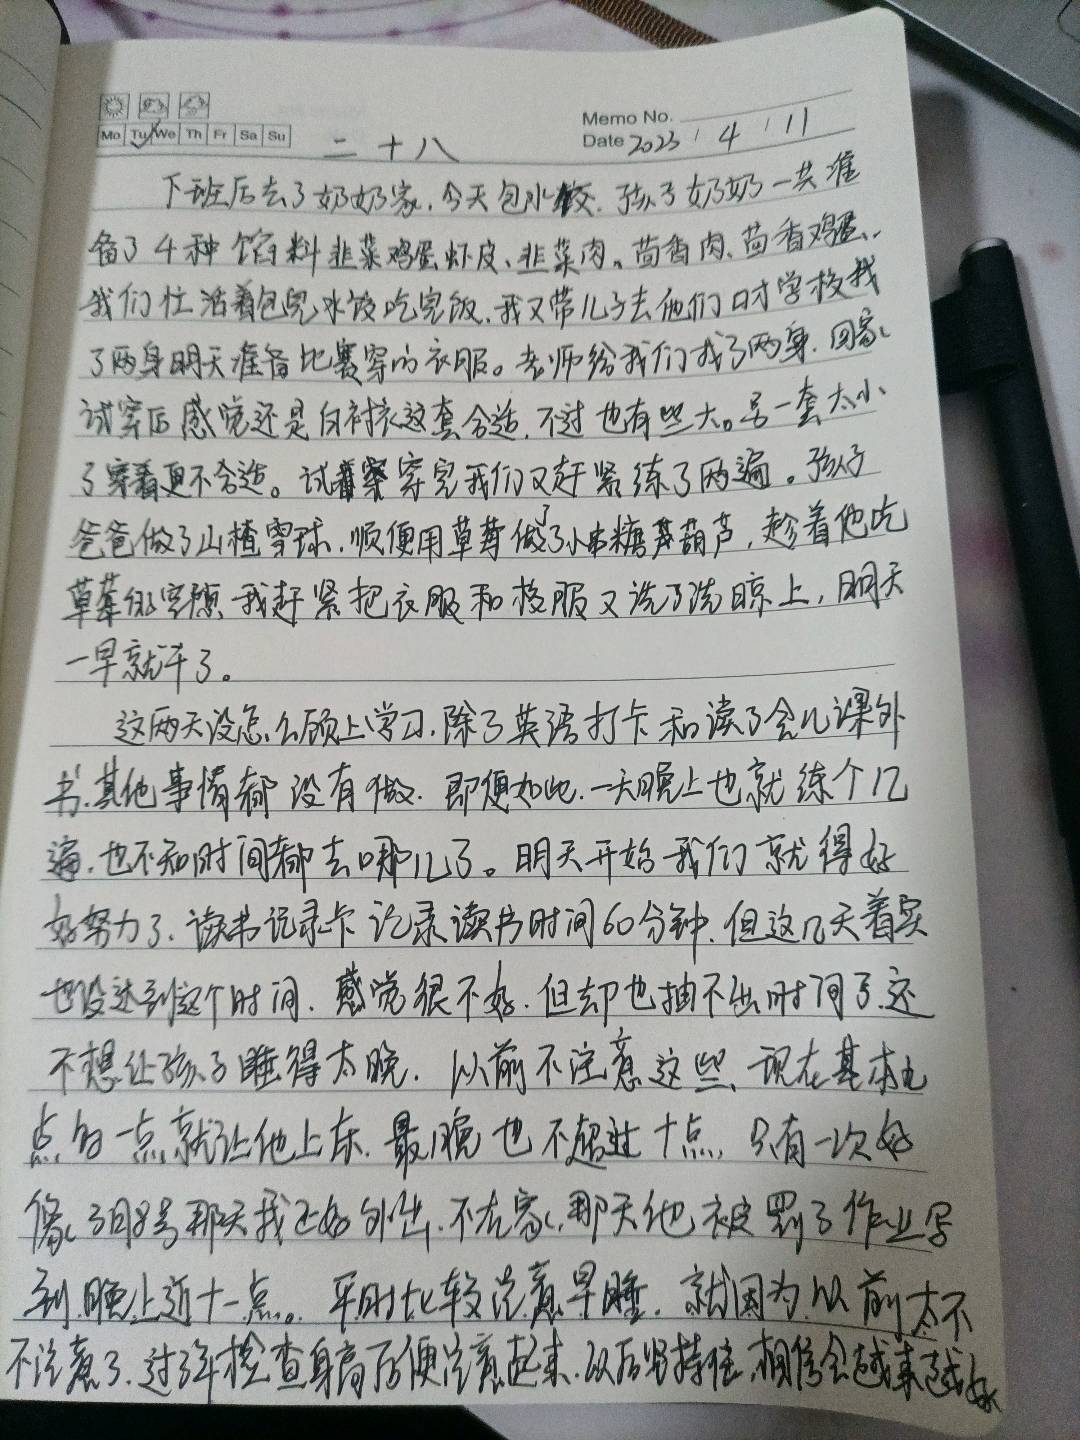 Memo No.
Mo Tu We Th Fr Sa Su
Date 2023 / 4 / 11
二十八
下班后去了奶奶家,今天包水饺.孩子奶奶一共准
备了4种馅料韭菜鸡蛋虾皮、韭菜肉。茴香肉、茴香鸡蛋.
我们忙活着包完水饺吃完饭.我又带儿子去他们口才学校找
了两身明天准备比赛穿的衣服。老师给我们找了两身.回家
试穿后感觉还是白衬衣这套合适.不过也有些大。另一套太小
了穿着更不合适。试着穿完我们又赶紧练了两遍。孩子
爸爸做了山楂雪球.顺便用草莓做了小串糖葫芦,趁着他吃
草莓的空隙我赶紧把衣服和校服又洗了洗晾上,明天
一早就干了。
这两天没怎么顾上学习.除了英语打卡和读了会儿课外
书.其他事情都没有做.即便如此.一天晚上也就练个几
遍.也不知时间都去哪儿了。明天开始我们就得好
好努力了.读书记录卡记录读书时间60分钟.但这几天着实
也没达到这个时间.感觉很不好.但却也抽不出时间了.还
不想让孩子睡得太晚.以前不注意这些、现在基本九
点的一点就让他上床.最晚也不超过十点,只有一次好
像3月8号那天我正好外出.不在家,那天他被罚了作业写
到晚上近十一点。平时比较注意早睡.就因为以前太不
不注意了.过了年检查身高后便注意起来.以后坚持住,相信会越来越好